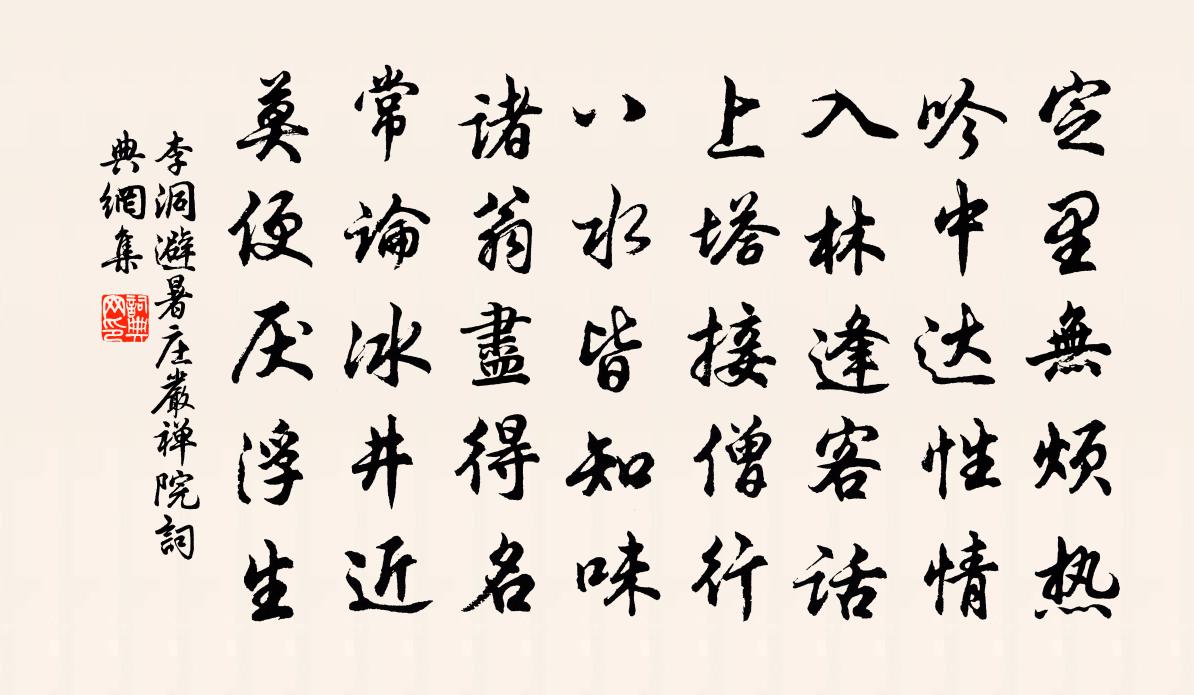 定里無煩热
吟中达性情
入林逢客话
上塔接僧行
八水皆知味
诸翁盡得名
常論冰井近
莫便厌浮生
李洞避暑庄嚴禅院詞
典網集
詞典网印